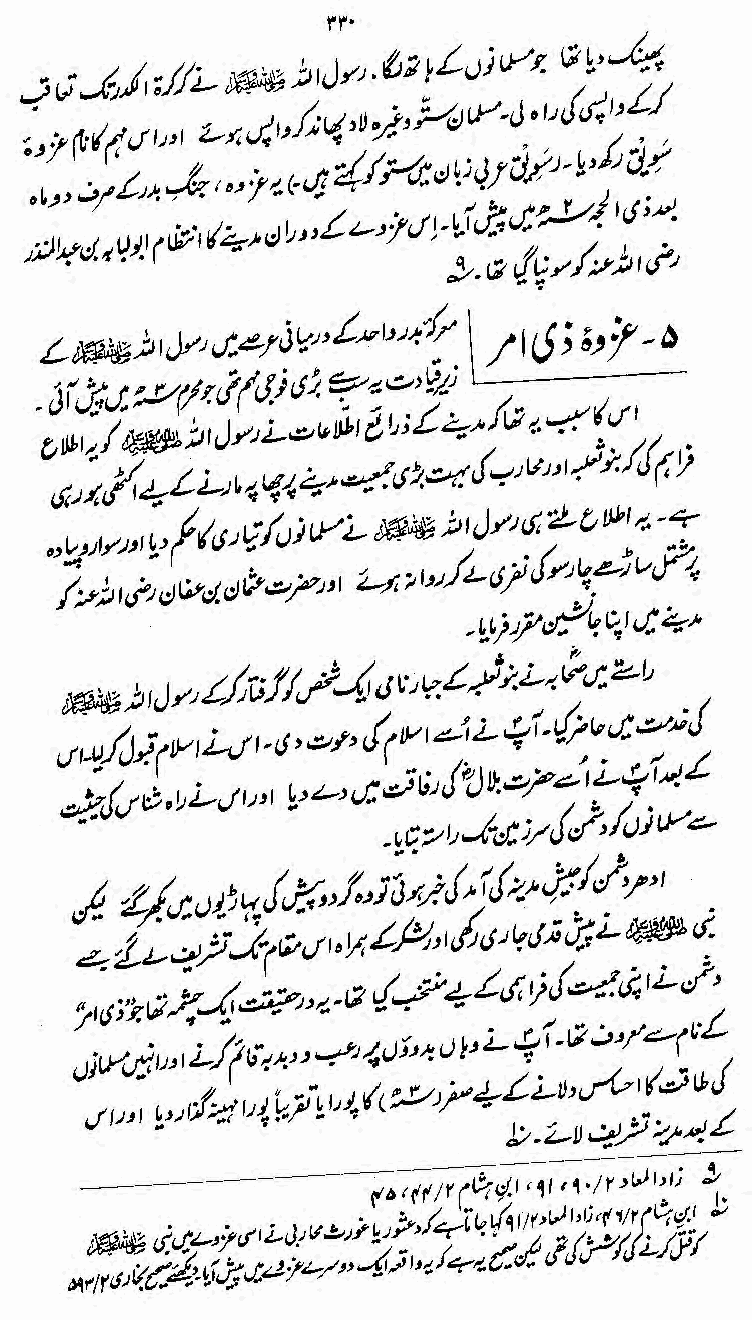 ۳۳۰
پھینک دیا تھا جو مسلمانوں کے ہاتھ لگا۔ رسول اللہ ﷺ نے کرکرۃ الکدر تک تعاقب
کرکے واپسی کی راہ لی۔ مسلمان ستّو وغیرہ لاد پھاند کر واپس ہوئے اور اس مہم کا نام غزوۂ
سَوِیْق رکھ دیا۔ (سَوِیْق عربی زبان میں ستو کو کہتے ہیں۔) یہ غزوہ، جنگِ بدر کے صرف دو ماہ
بعد ذی الحجہ ۲ھ میں پیش آیا۔ اِس غزوے کے دوران مدینے کا انتظام ابولبابہ بن عبدالمنذر
رضی اللہ عنہ کو سونپا گیا تھا۔ ۹
۵۔ غزوۂ ذی امر
معرکۂ بدر و احد کے درمیانی عرصے میں رسول اللہ ﷺ کے
زیرِ قیادت یہ سب سے بڑی فوجی مہم تھی جو محرم ۳ھ میں پیش آئی۔
اس کا سبب یہ تھا کہ مدینے کے ذرائع اطّلاعات نے رسول اللہ ﷺ کو یہ اطلاع
فراہم کی کہ بنو ثعلبہ اور محارب کی بہت بڑی جمعیت مدینے پر چھاپہ مارنے کے لیے اکٹھی ہو رہی
ہے۔ یہ اطلاع ملتے ہی رسول اللہ ﷺ نے مسلمانوں کو تیاری کا حکم دیا اور سوار و پیادہ
پر مشتمل ساڑھے چار سو کی نفری لے کر روانہ ہوئے اور حضرت عثمان بن عفان رضی اللہ عنہ کو
مدینے میں اپنا جانشین مقرر فرمایا۔
راستے میں صحابہؓ نے بنو ثعلبہ کے جبار نامی ایک شخص کو گرفتار کرکے رسول اللہ ﷺ
کی خدمت میں حاضر کیا۔ آپؐ نے اُسے اسلام کی دعوت دی۔ اس نے اسلام قبول کر لیا۔ اس
کے بعد آپؐ نے اُسے حضرت بلالؓ کی رفاقت میں دے دیا اور اس نے راہ شناس کی حیثیت
سے مسلمانوں کو دشمن کی سرزمین تک راستہ بتایا۔
ادھر دشمن کو جیشِ مدینہ کی آمد کی خبر ہوئی تو وہ گرد و پیش کی پہاڑیوں میں بکھر گئے لیکن
نبی ﷺ نے پیش قدمی جاری رکھی اور لشکر کے ہمراہ اس مقام تک تشریف لے گئے جسے
دشمن نے اپنی جمعیت کی فراہمی کے لیے منتخب کیا تھا۔ یہ در حقیقت ایک چشمہ تھا جو ”ذی امر“
کے نام سے معروف تھا۔ آپؐ نے وہاں بدوؤں پر رعب و دبدبہ قائم کرنے اور انہیں مسلمانوں
کی طاقت کا احساس دلانے کے لیے صفر (۳ھ) کا پورا یا تقریباً پورا مہینہ گذار دیا اور اس
کے بعد مدینہ تشریف لائے۔ ۱۰
۹ زاد المعاد ۲/۹۰، ۹۱، ابنِ ہشام ۲/۴۴، ۴۵
۱۰ ابنِ ہشام ۲/۴۶، زاد المعاد ۲/۹۱ کہا جاتا ہے کہ دعثور یا غورث محاربی نے اسی غزوے میں نبی ﷺ
کو قتل کرنے کی کوشش کی تھی لیکن صحیح یہ ہے کہ یہ واقعہ ایک دوسرے غزوے میں پیش آیا دیکھئے صحیح بخاری ۲/۵۹۳